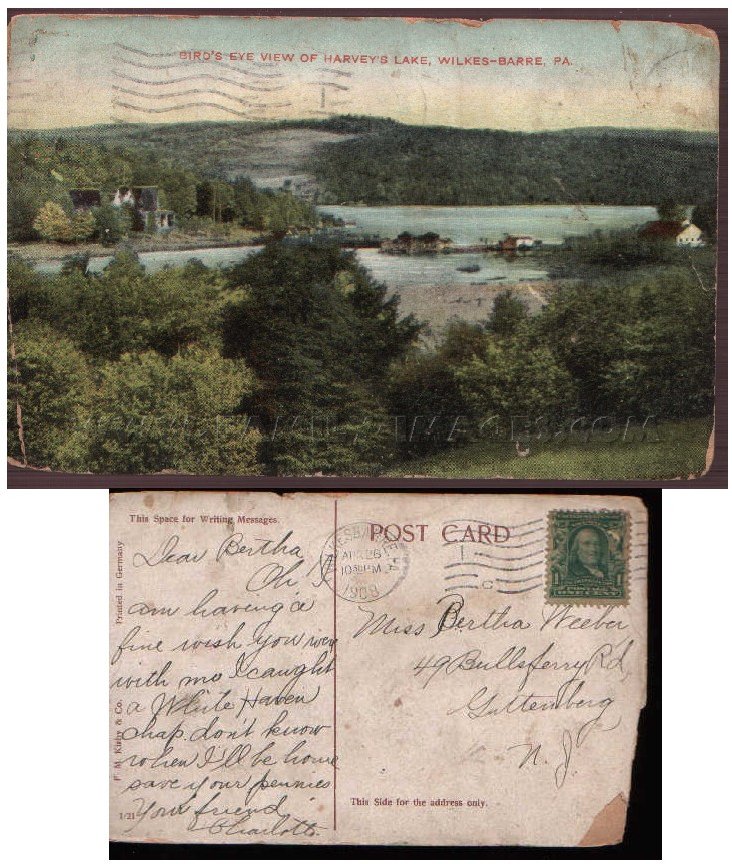 BIRD'S EYE VIEW OF HARVEY'S LAKE, WILKES-BARRE, PA.
This Space for Writing Messages.
Dear Bertha
Oh I
am having a
fine wish you were
with me I caught
a White Haven
chap. don't know
when I'll be home
save your pennies
Your friend
Charlotte
Printed in Germany
F. M. Kirby & Co.
1/21
POST CARD
10 30 PM
ONE CENT
1
Miss Bertha Weeber
49 Bullsferry Rd,
Guttenberg
N. J.
This Side for the address only.